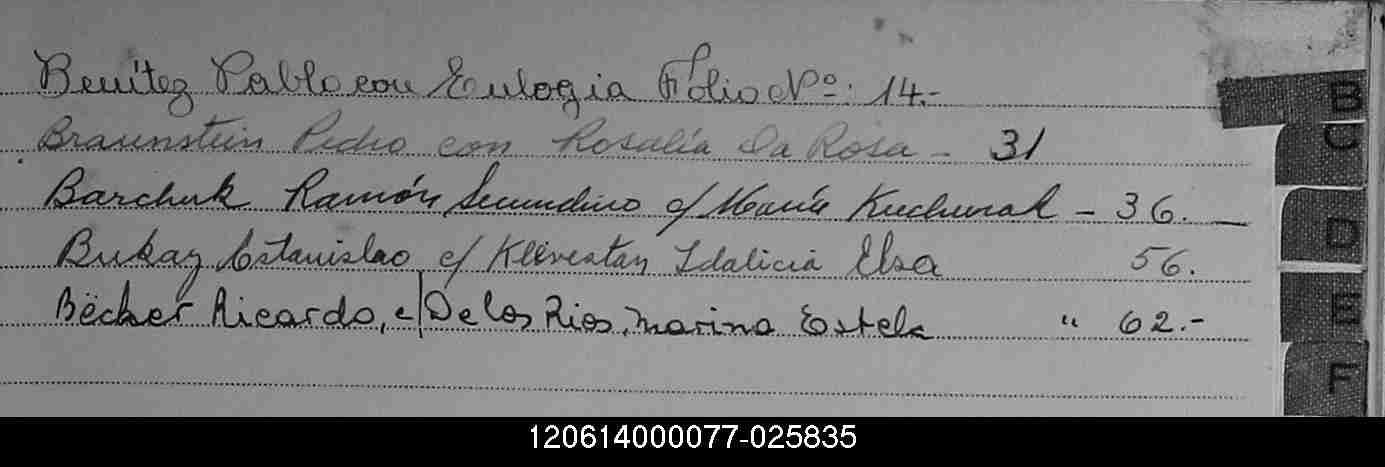 Benítez Pablo con Eulogia Folio Nº: 14.-
Braunstein Pedro con Rosalía Da Rosa - 31
Barchuk Ramón Secundino c/ María Kuchurak - 36. —
Bukay Estanislao c/ Idalicia Elsa 56.
Bëcker Ricardo, c/ De los Rios, Marina Estela " 62.-
B
C
D
E
F
120614000077-025835